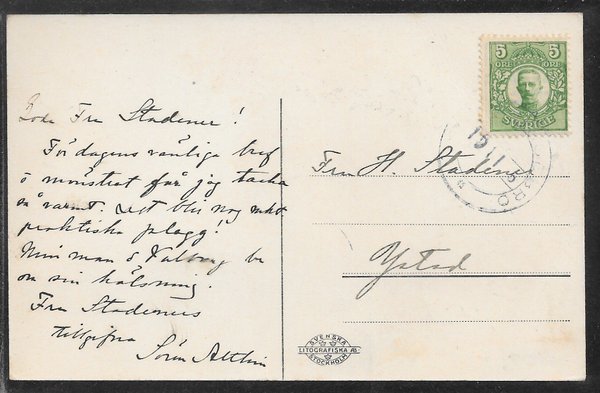 Fru Stadener!
För dagens vänliga bref
o mönstret får jag tacka
så varmt. Det blir nog mkt
praktiska plagg!
Min man o Valborg be
om sin hälsning.
Fru Stadeners
tillgifna
5 5
ÖRE ÖRE
SVERIGE
Fru H. Stadener
Ystad
SVENSKA
LITOGRAFISKA AB
STOCKHOLM